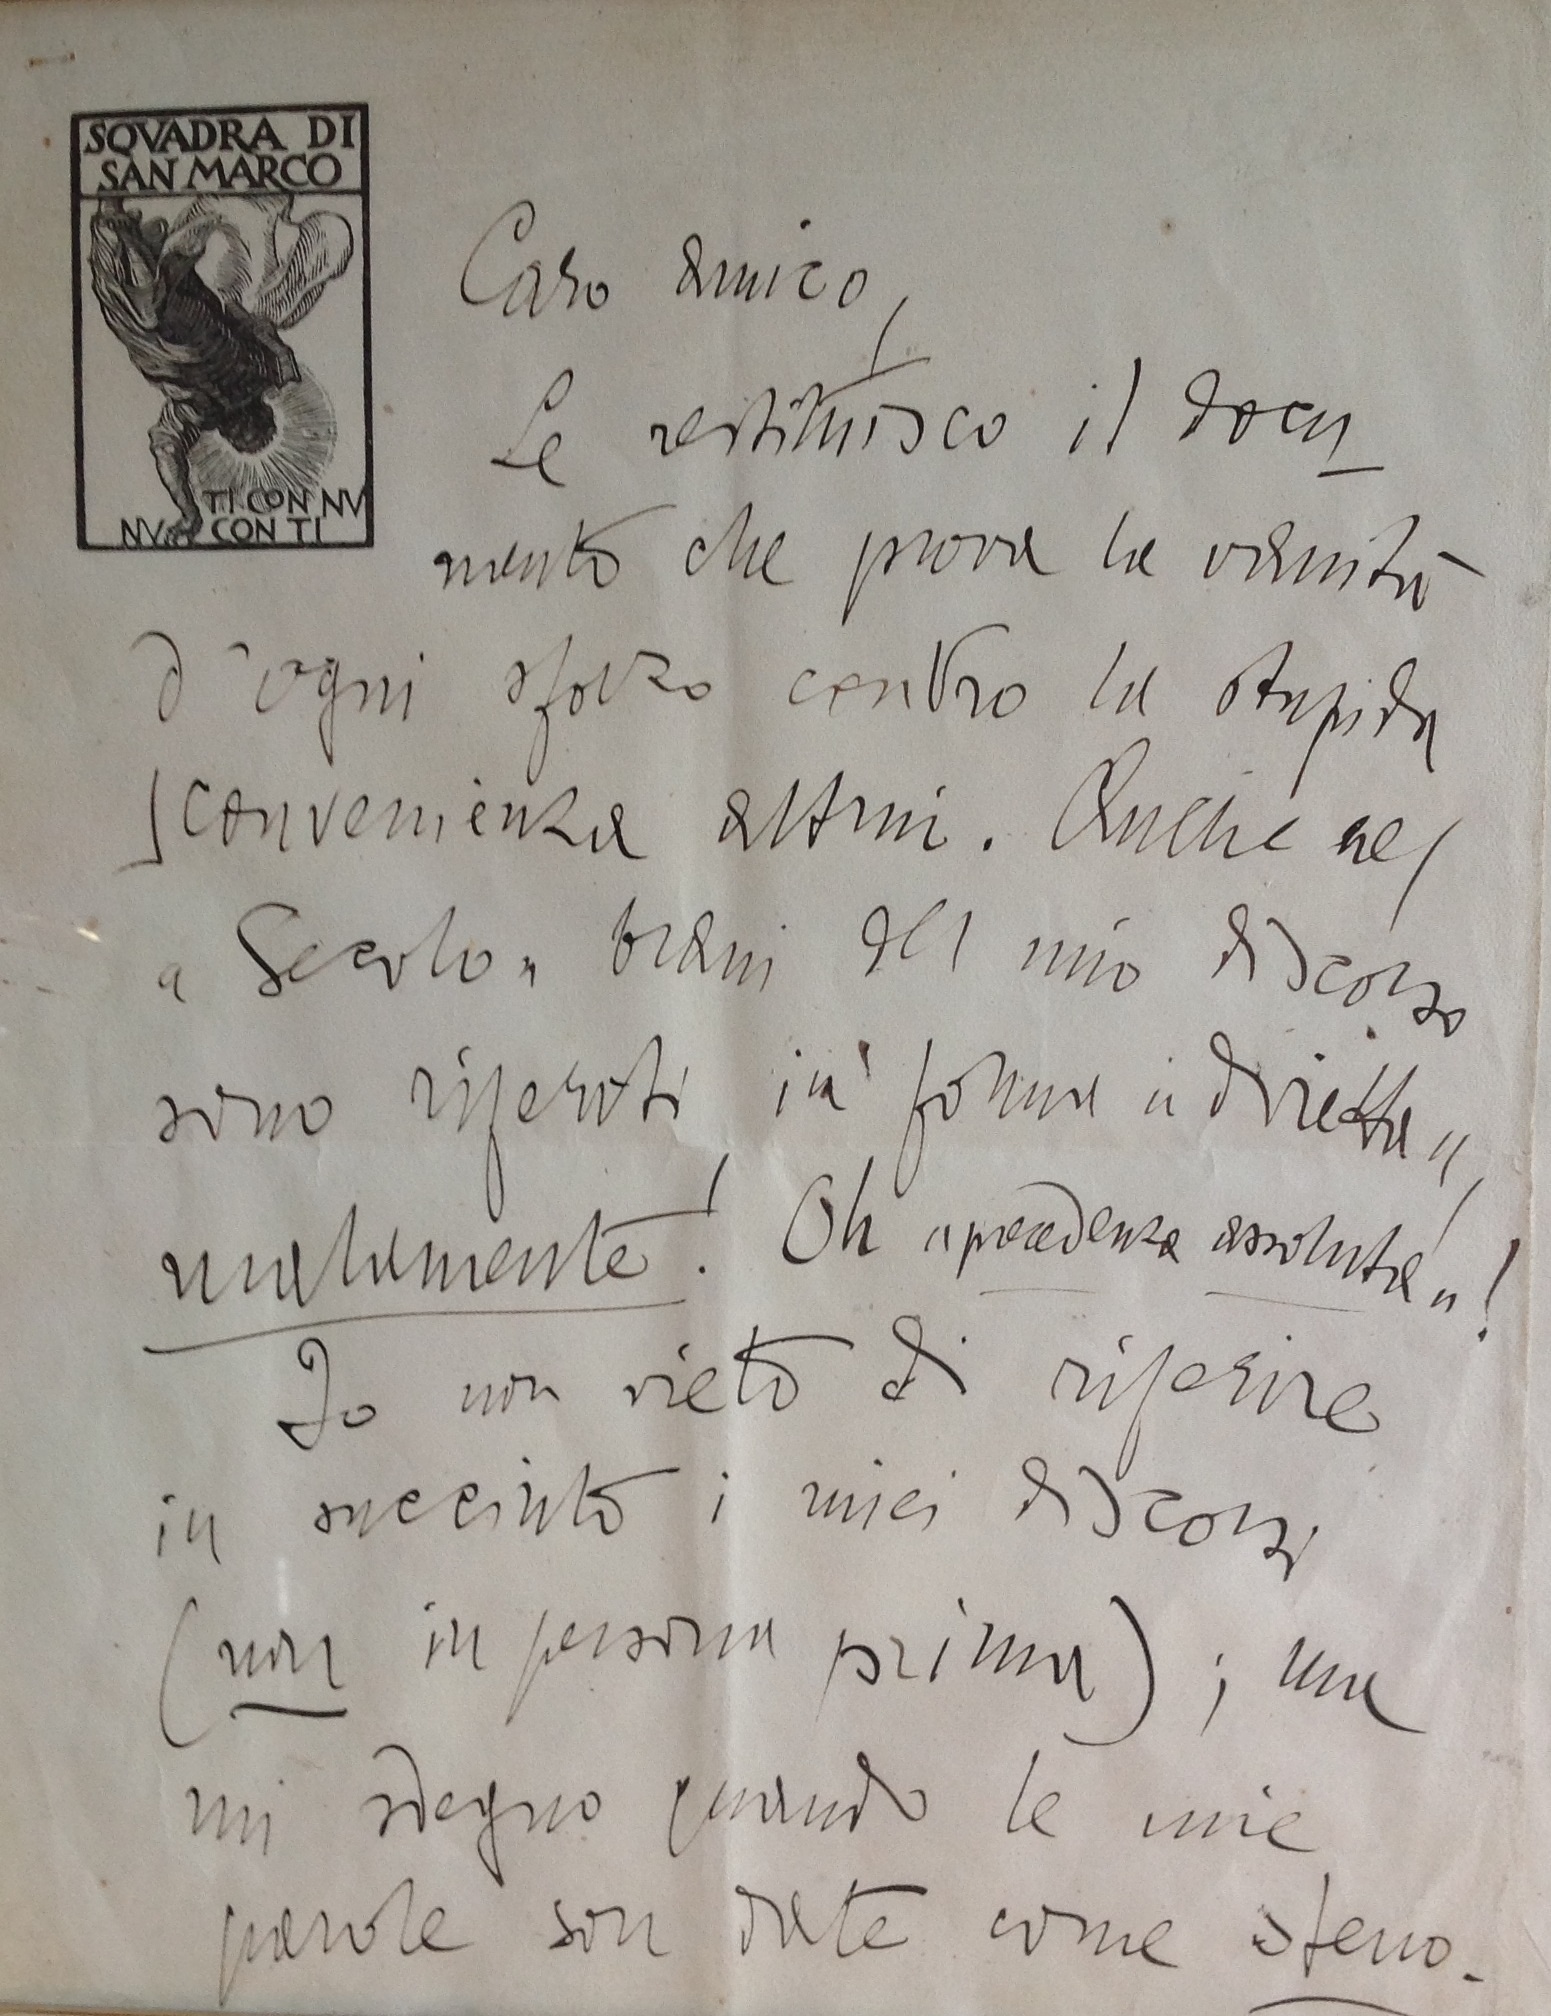 SQVADRA DI
SAN MARCO
TI CON NV
NV CON TI
Caro amico,
Le restituisco il docu
mento che prova la vanità
d'ogni sforzo contro la stupida
sconvenienza altrui. Anche nel
"Secolo" brani del mio discorso
sono riferiti in forma "diretta",
malamente! Oh "precedenza assoluta"!
Io non vieto di riferire
in succinto i miei discorsi
(non in persona prima); ma
mi sdegno quando le mie
parole son date come steno-